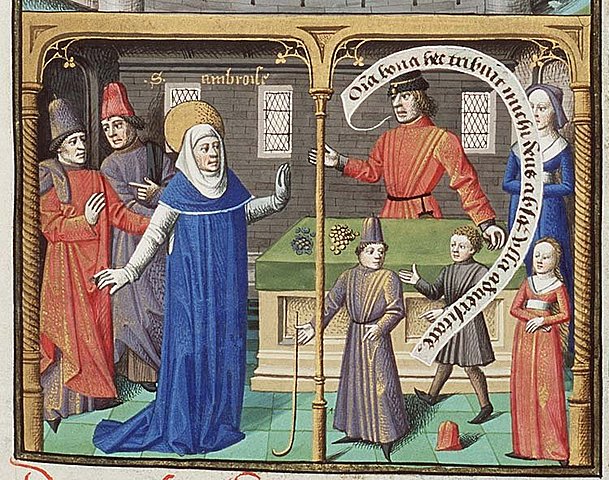 S. ambroise
Oīa bona hec tribuit michi deus absqꝫ vlla aduersitate